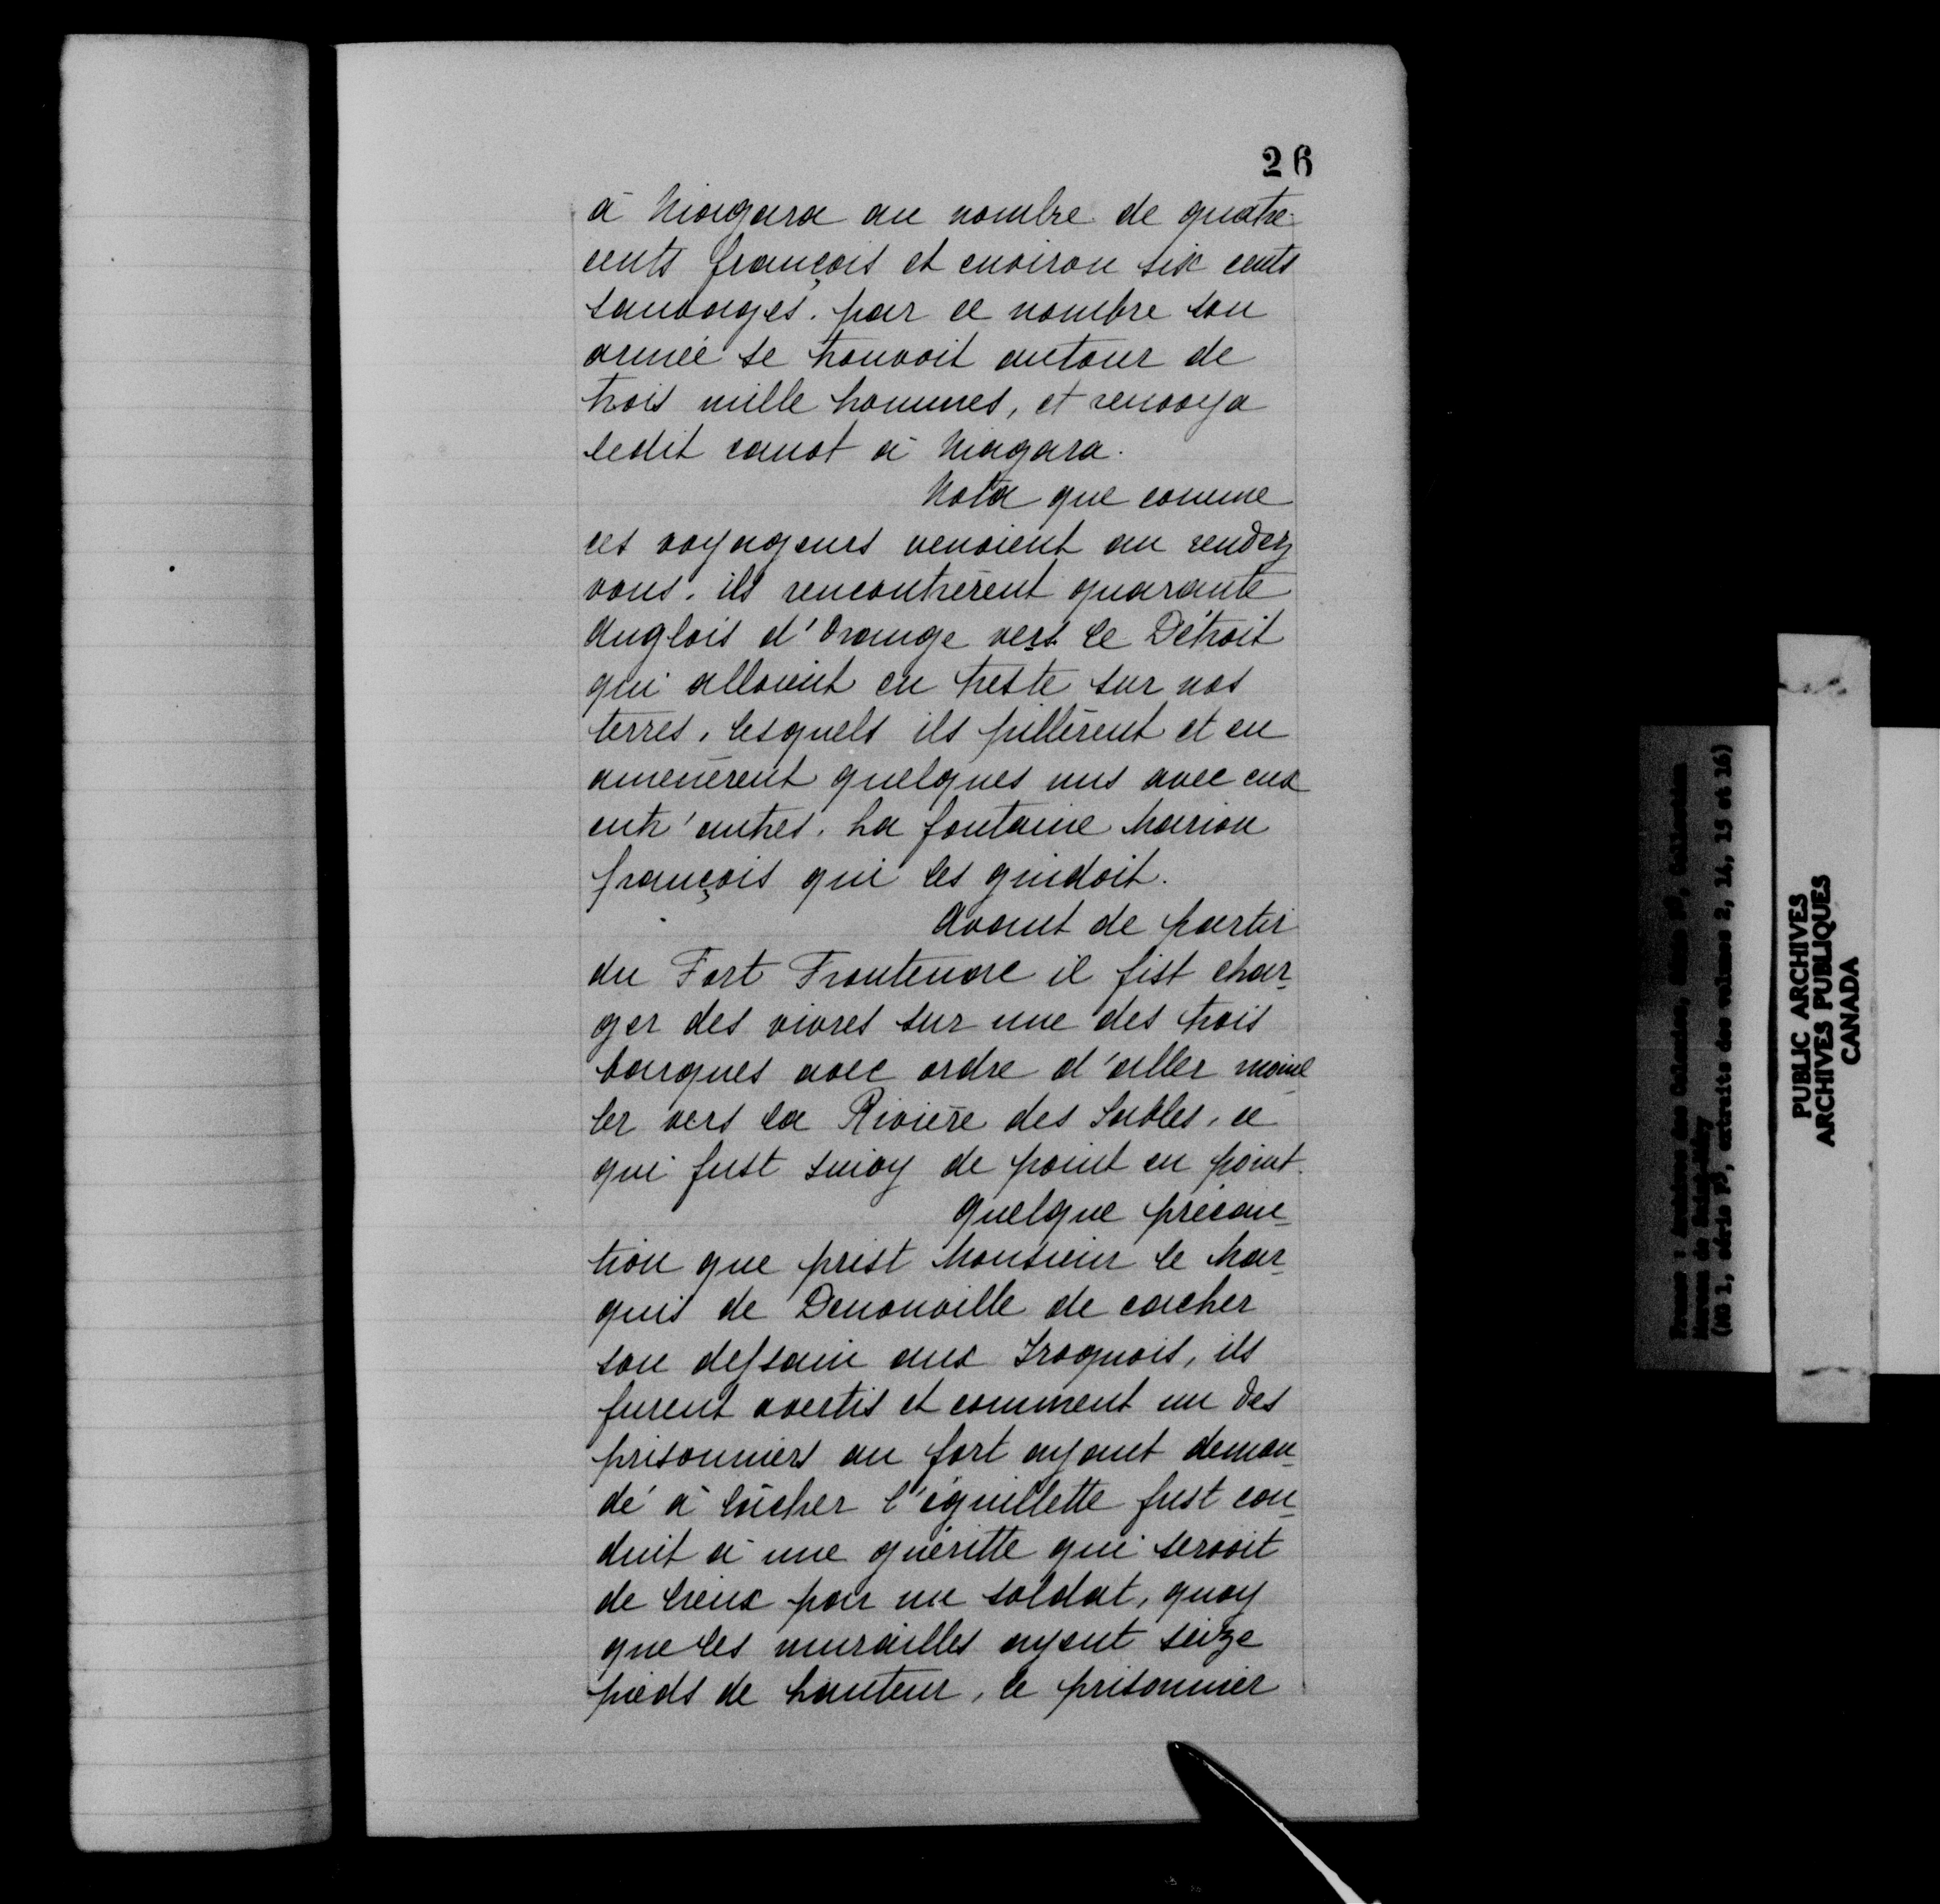 26
à Niagara au nombre de quatre
cents françois et environ six cents
sauvages. par ce nombre son
armée se trouvoit autour de
trois mille hommes, et renvoya
ledit canot à Niagara.
Nota que comme
ces voyageurs venoient au rendez
vous, ils rencontrèrent quarante
Anglois d'Orange vers le Détroit
qui alloient en treste sur nos
terres, lesquels ils pillèrent et en
amenèrent quelques uns avec eux
entr'autres, La fontaine Marion
françois qui les guidoit.
Avant de partir
du Fort Frontenac il fist char-
ger des vivres sur une des trois
barques avec ordre d'aller mouil
ler vers la Rivière des Sables, ce
qui fust suivy de point en point.
Quelque précau-
tion que prist Monsieur le Mar-
quis de Denonville de cacher
son dessain aux Iroquois, ils
furent avertis et comment un des
prisonniers au fort ayant deman-
dé à lâcher l'éguillette fust con-
duit à une guéritte qui servoit
de lieux par un soldat, quoy
que les murailles ayent seize
pieds de hauteur, le prisonnier
PUBLIC ARCHIVES
ARCHIVES PUBLIQUES
CANADA
(No 1, série F3, extraits des volumes 2, 14, 15 et 16)